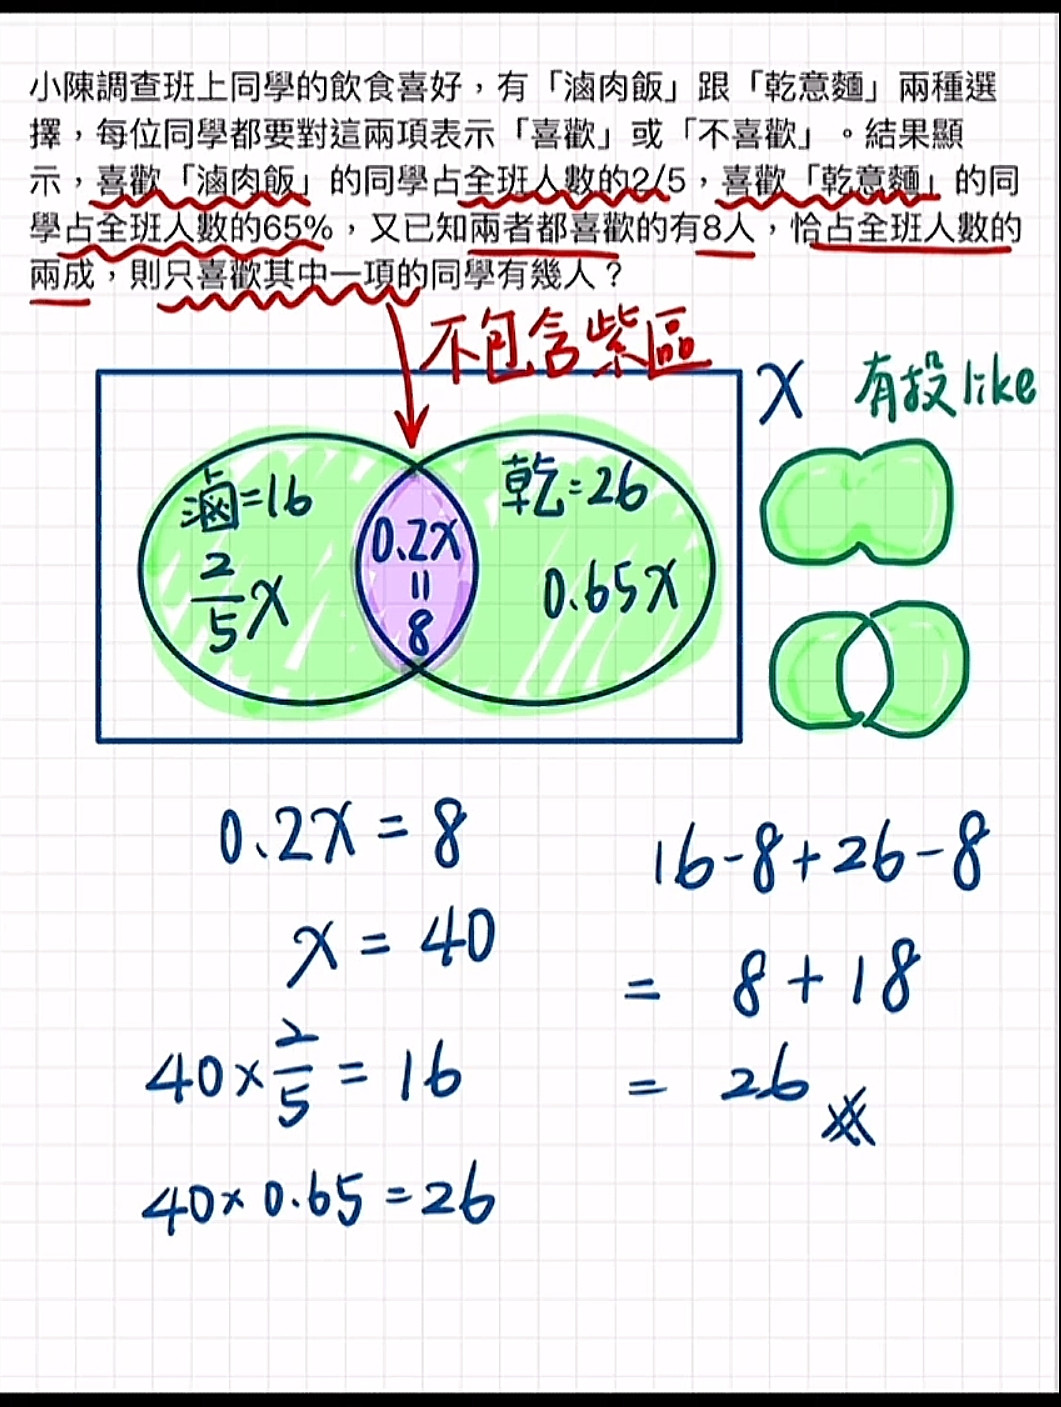 小陳調查班上同學的飲食喜好，有「滷肉飯」跟「乾意麵」兩種選
擇，每位同學都要對這兩項表示「喜歡」或「不喜歡」。結果顯
示，喜歡「滷肉飯」的同學占全班人數的2/5，喜歡「乾意麵」的同
學占全班人數的65%，又已知兩者都喜歡的有8人，恰占全班人數的
兩成，則只喜歡其中一項的同學有幾人？
不包含紫區
x
有投like
滷=16
2/5 x
0.2x
=
8
乾=26
0.65x
0.2x = 8
x = 40
40 × 2/5 = 16
40 × 0.65 = 26
16-8+26-8
= 8+18
= 26